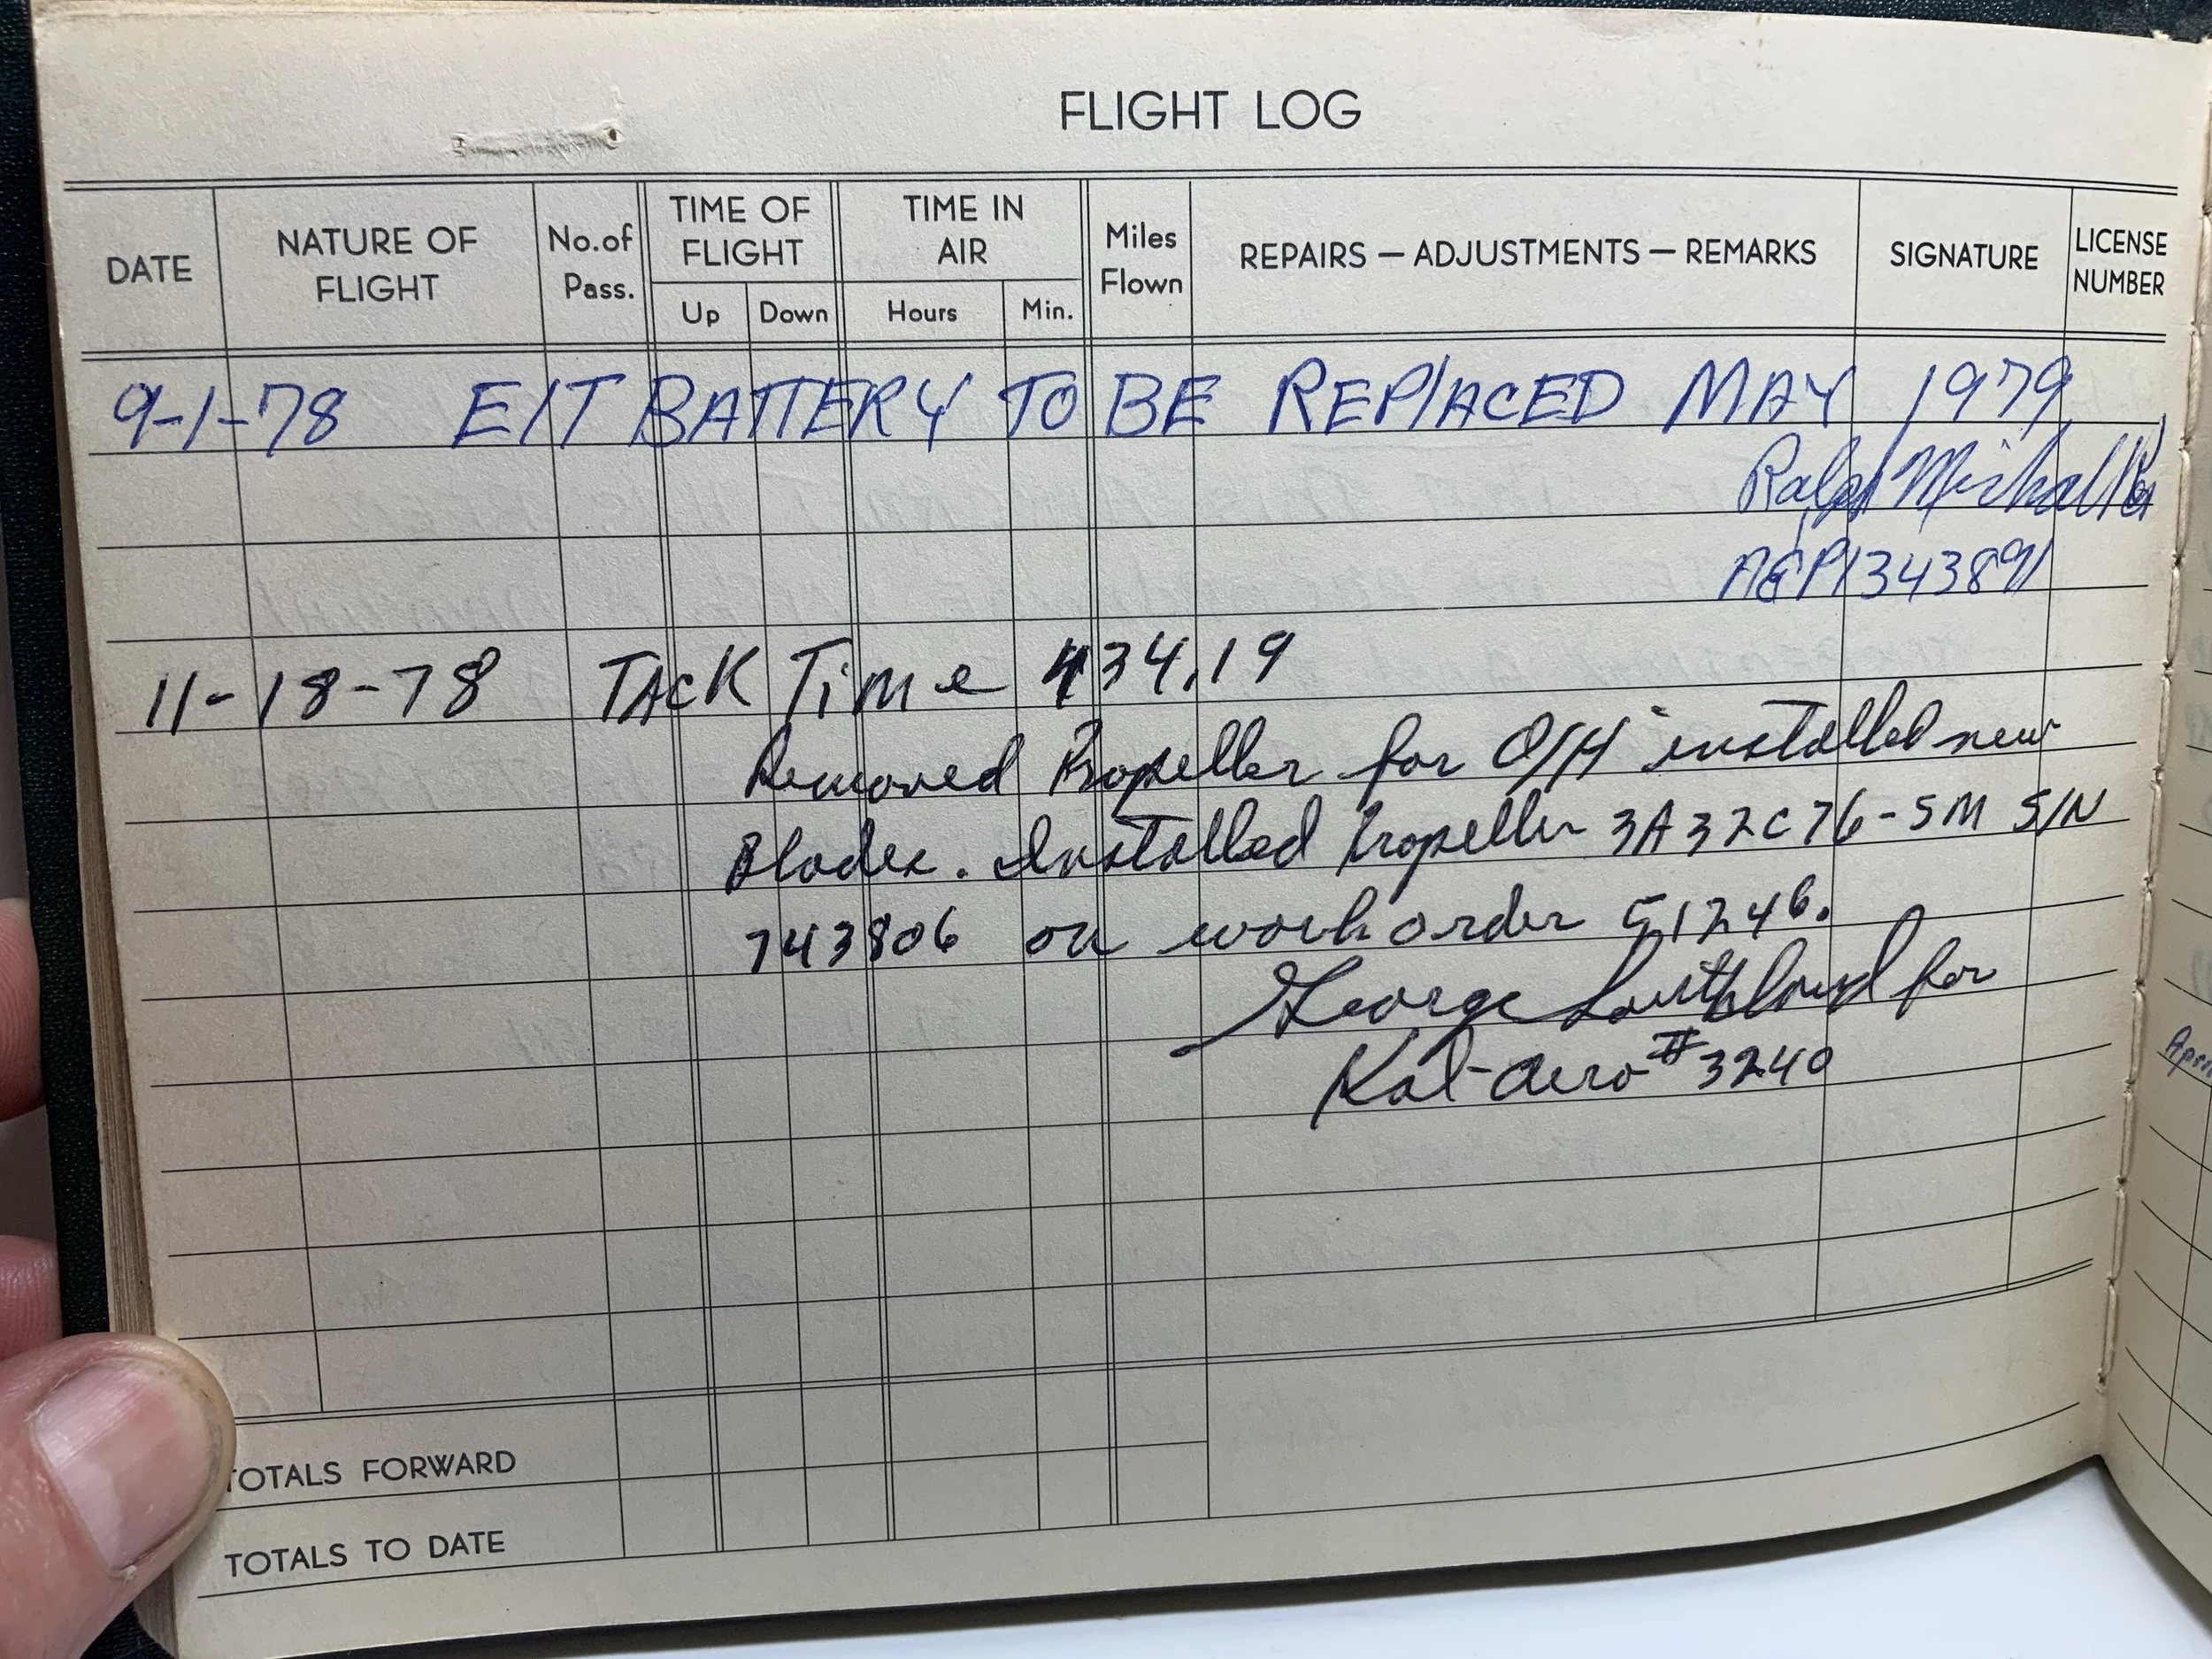 FLIGHT LOG
DATE
NATURE OF FLIGHT
No. of Pass.
TIME OF FLIGHT
Up
Down
TIME IN AIR
Hours
Min.
Miles Flown
REPAIRS — ADJUSTMENTS — REMARKS
SIGNATURE
LICENSE NUMBER
9-1-78 E/T BATTERY TO BE REPLACED MAY 1979
Ralph
A&P1343891
11-18-78 TACK TiMe 434.19
Removed Propeller for O/H installed new
Blades. Installed Propeller 3A32C76-SM S/N
743806 on work order 51246.
George for
Kal-Aero #3240
TOTALS FORWARD
TOTALS TO DATE